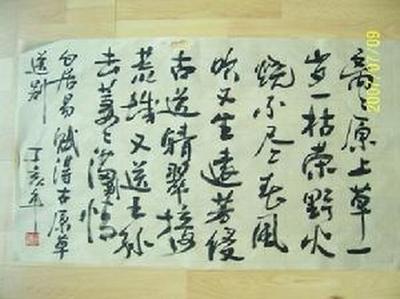 离〻原上草一
岁一枯荣野火
烧不尽春风
吹又生远芳侵
古道晴翠接
荒城又送王孙
去萋〻满情
白居易赋得古原草
送别 丁亥年
2007/07/09